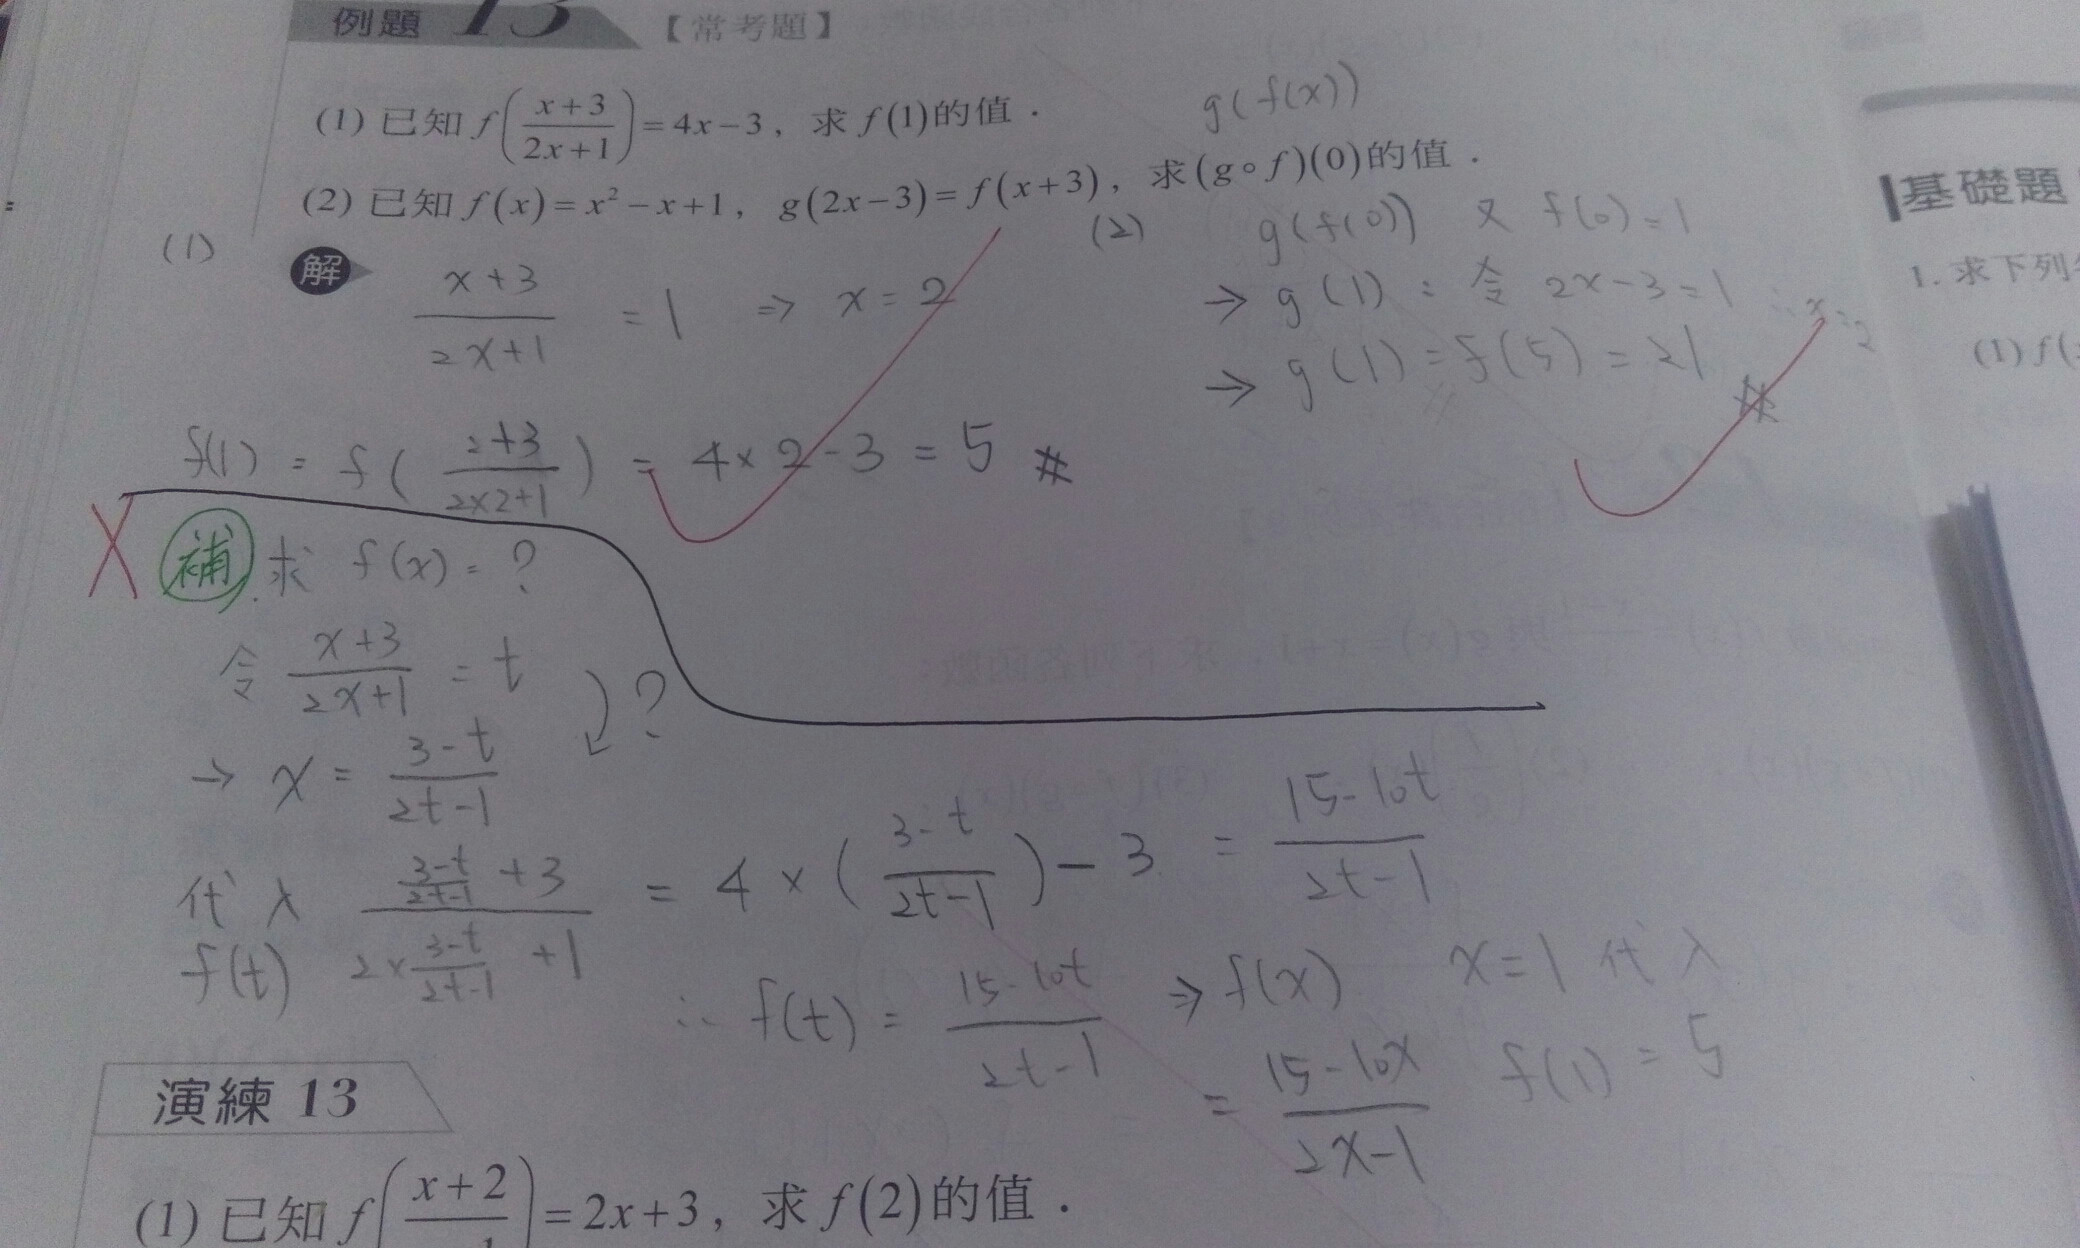 例題 13 【常考題】
(1) 已知 f((x+3)/(2x+1)) = 4x-3，求 f(1) 的值．
g(f(x))
(2) 已知 f(x) = x²-x+1，g(2x-3) = f(x+3)，求 (g∘f)(0) 的值．
(1)
解
(x+3)/(2x+1) = 1 ⇒ x = 2
f(1) = f((2+3)/(2×2+1)) = 4×2-3 = 5 #
(2)
g(f(0)) 又 f(0) = 1
→ g(1) : 令 2x-3 = 1 ∴ x = 2
→ g(1) = f(5) = 21 #
X 補 求 f(x) = ?
令 (x+3)/(2x+1) = t
?
→ x = (3-t)/(2t-1)
代入 f(t) ((3-t)/(2t-1) + 3)/(2×(3-t)/(2t-1) + 1) = 4×((3-t)/(2t-1)) - 3 = (15-10t)/(2t-1)
∴ f(t) = (15-10t)/(2t-1) ⇒ f(x)
= (15-10x)/(2x-1)
x = 1 代入
f(1) = 5
演練 13
(1) 已知 f((x+2)/ ) = 2x+3，求 f(2) 的值．
基礎題
1. 求下列
(1) f(